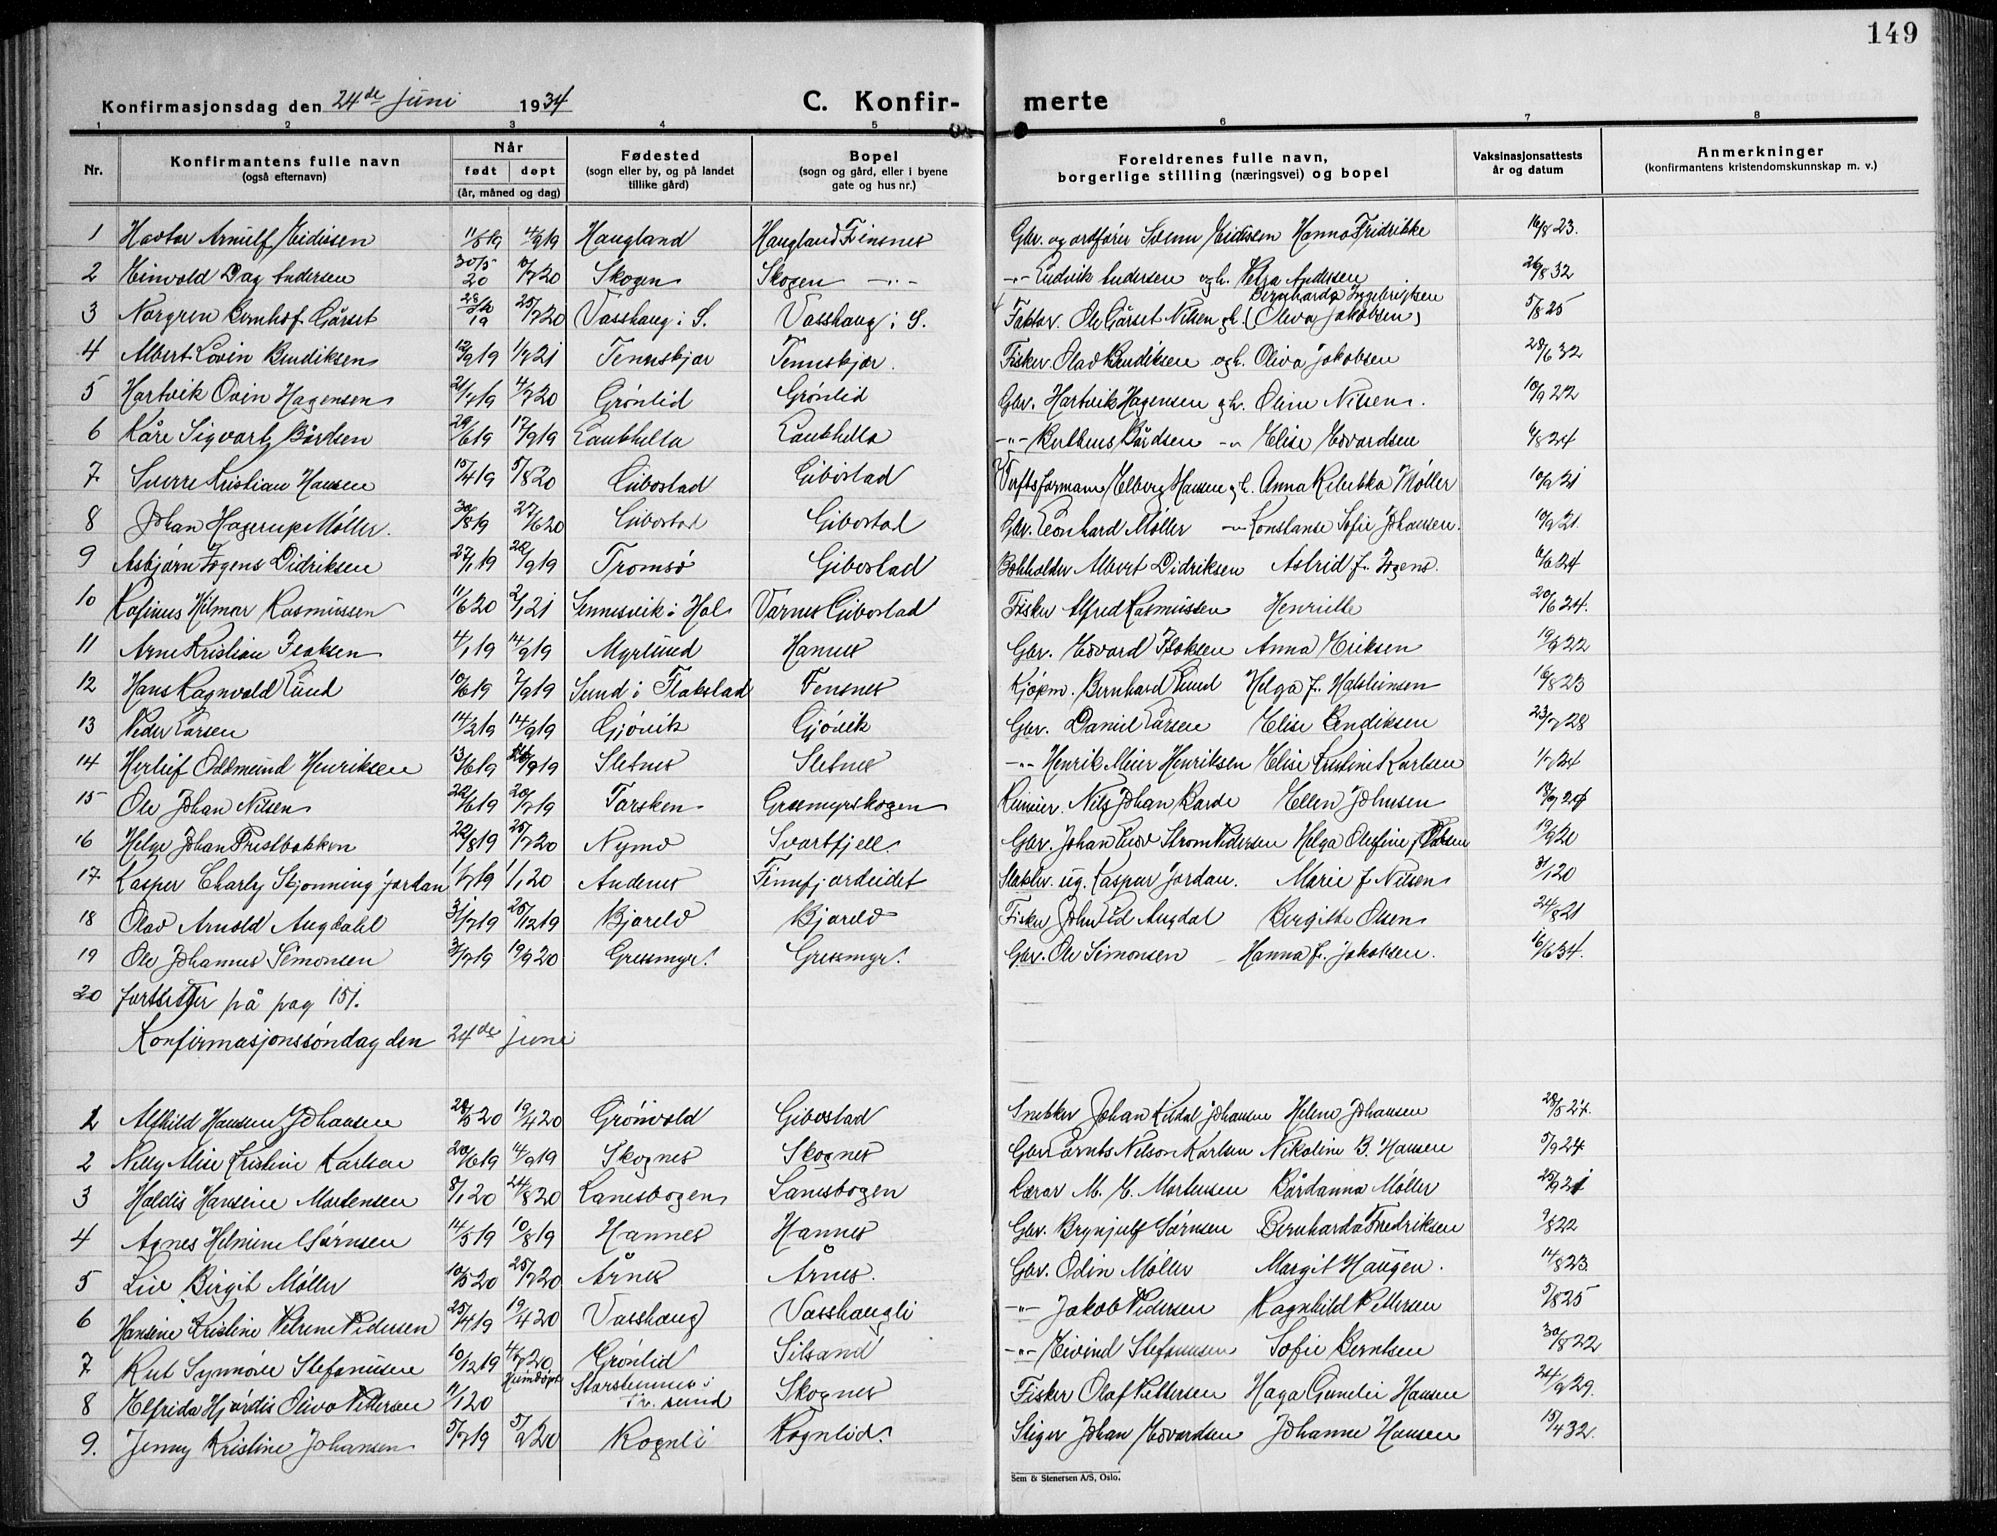 149
Konfirmasjonsdag den 24de juni 1934 C. Konfir- merte
1 2 3 4 5 6 7 8
Nr. Konfirmantens fulle navn (også efternavn) Når født døpt (år, måned og dag) Fødested (sogn eller by, og på landet tillike gård) Bopel (sogn og gård, eller i byene gate og hus nr.) Foreldrenes fulle navn, borgerlige stilling (næringsvei) og bopel Vaksinasjonsattests år og datum Anmerkninger (konfirmantens kristendomskunnskap m. v.)
1 Arnulf Eidissen 11/5 19 4/9 19 Haugland Haugland Finsnes Gbr. og ordfører Eidissen Hanna Fridrikke 16/8 23.
2 Dag Andersen 30/5 20 Skogen Skogen -"- -"- Ludvik Andersen og h. Petra Andersen 26/8 32
3 Norgren Bernhof Gårset 19 25/7 20 Vasshaug i S. Vasshaug i S. Faktor. Ole Gårset Nilsen og h. Bernharda Ingebrigtsen (Oliva Jakobsen) 5/8 25
4 Albert Lovin Bendiksen 12/9 19 1/7 21 Tennskjær Tennskjær. Fisker. Olav Bendiksen og h. Oliva Jakobsen 28/6 32
5 Hartvik Ovin Hagensen 21/7 19 4/7 20 Grønlid Grønlid Gbr. Hartvik Hagensen og h. Oline Nilsen. 10/9 22
6 Kåre Sigvart Bårdsen 29/6 19 17/9 19 Laukhella Laukhella -"- Bårdsen -"- Elise Edvardsen 6/8 24
7 Sverre Kristian Hansen 15/4 19 5/8 20 Gibostad Gibostad Verftsformann Elberg Hansen og h. Anna Rebekka Møller 10/9 21
8 Johan Hagerup Møller. 30/8 19 27/6 20 Gibostad Gibostad Gbr. Leonhard Møller -"- Konstanse Sofie Johansen. 10/9 21.
9 Asbjørn Irgens Didriksen 27/1 19 28/9 19 Tromsø Gibostad Bokholder Albert Didriksen Astrid f. Irgens. 6/6 24
10 Hilmar Rasmussen 11/6 20 2/1 21 Sennesvik i Hol Vårnes Gibostad Fisker Alfred Rasmussen Henriette 20/6 24.
11 Arne Kristian Isaksen 4/1 19 14/9 19 Myrlund Hannes Gbr. Edvard Isaksen Anna Eriksen 19/9 22
12 Hans Ragnvald Lund 10/6 19 7/9 19 Sund i Flakstad Finsnes Kjøpm. Bernhard Lund Helga f. Halsteinsen 16/8 23
13 Peder Larsen 14/2 19 14/9 19 Gjövik Gjövik Gbr. Daniel Larsen Elise Bendiksen 23/7 28
14 Herleif Oddmund Henriksen 13/6 19 9 19 Sletnes Sletnes -"- Henrik Meier Henriksen Elise Kristine Karlsen 1/7 24
15 Ole Johan Nilsen 22/6 19 20/7 19 Torsken Grasmyrskogen Nils Johan Barde Ellen Johnsen
16 Helge Johan Prestbakken 22/8 19 25/7 20 Nymo Svartfjell. Gbr. Johan Strøm Pedersen Helga Olufine 19/9 20
17 Kasper Charly Skjønning Jordan 1/7 19 1/1 20 Andenes Finnfjordeidet Kaspar Jordan. Marie f. Nilsen 31/1 20
18 Olav Arnold Angdahl 31/7 19 25/12 19 Bjorelv Bjorelv Fisker John Angdal Bergitte Olsen 24/8 21
19 Ole Johannes Simonsen 31/7 19 19/9 20 Gressmyr. Gressmyr. Gbr. Ole Simonsen - Hanna f. Jakobsen. 16/6 34.
20 fortsetter på pag 151.
Konfirmasjonssøndag den 24de juni
1 Alfhild Hansen Johansen 28/3 20 19/4 20 Grönvold Gibostad Snekker Johan Johansen Helene Johansen 28/5 27.
2 Nelly Alise Kristine Karlsen 20/6 19 14/9 19 Skognes Skognes Gbr. Nelson Karlsen Nikoline B. Hansen 5/9 24
3 Haldis Hansine Mortensen 8/1 20 24/8 20 Lanesbogen Lanesbogen Lærer M. E. Mortensen Bårdanna Møller 25/9 21
4 Agnes Helmine Sørnsen 14/5 19 10/8 19 Hannes Hannes Gbr. Brynjulf Sørnsen Bernharda Fredriksen 7/8 22
5 Liv Birgit Møller 10/3 20 25/7 20 Årnes Årnes. Gbr. Odin Møller Margit Haugen. 14/8 23
6 Hansine Kristine Petrine Pedersen 25/4 19 19/4 20 Vasshaug Vasshaugli -"- Jakob Pedersen Ragnhild Pettersen 5/8 25
7 Rut Synnöve Stefanusen 10/12 19 4/7 20 Grönlid Silsand -"- Eivind Stefanusen Sofie Berntsen 30/8 22
8 Elfrida Hjørdis Oliva Pettersen 11/1 20 Hjemdøpt Storsteinnes i Tr. sund Skognes Fisker Olaf Pettersen Haga Hansen 24/9 29.
9. Jenny Kristine Johansen 5/7 19 5/9 20 Rognli Rognlid. Stiger Johan Edvardsen Johanne Hansen 15/4 32.
Sem & Stenersen A/S, Oslo.